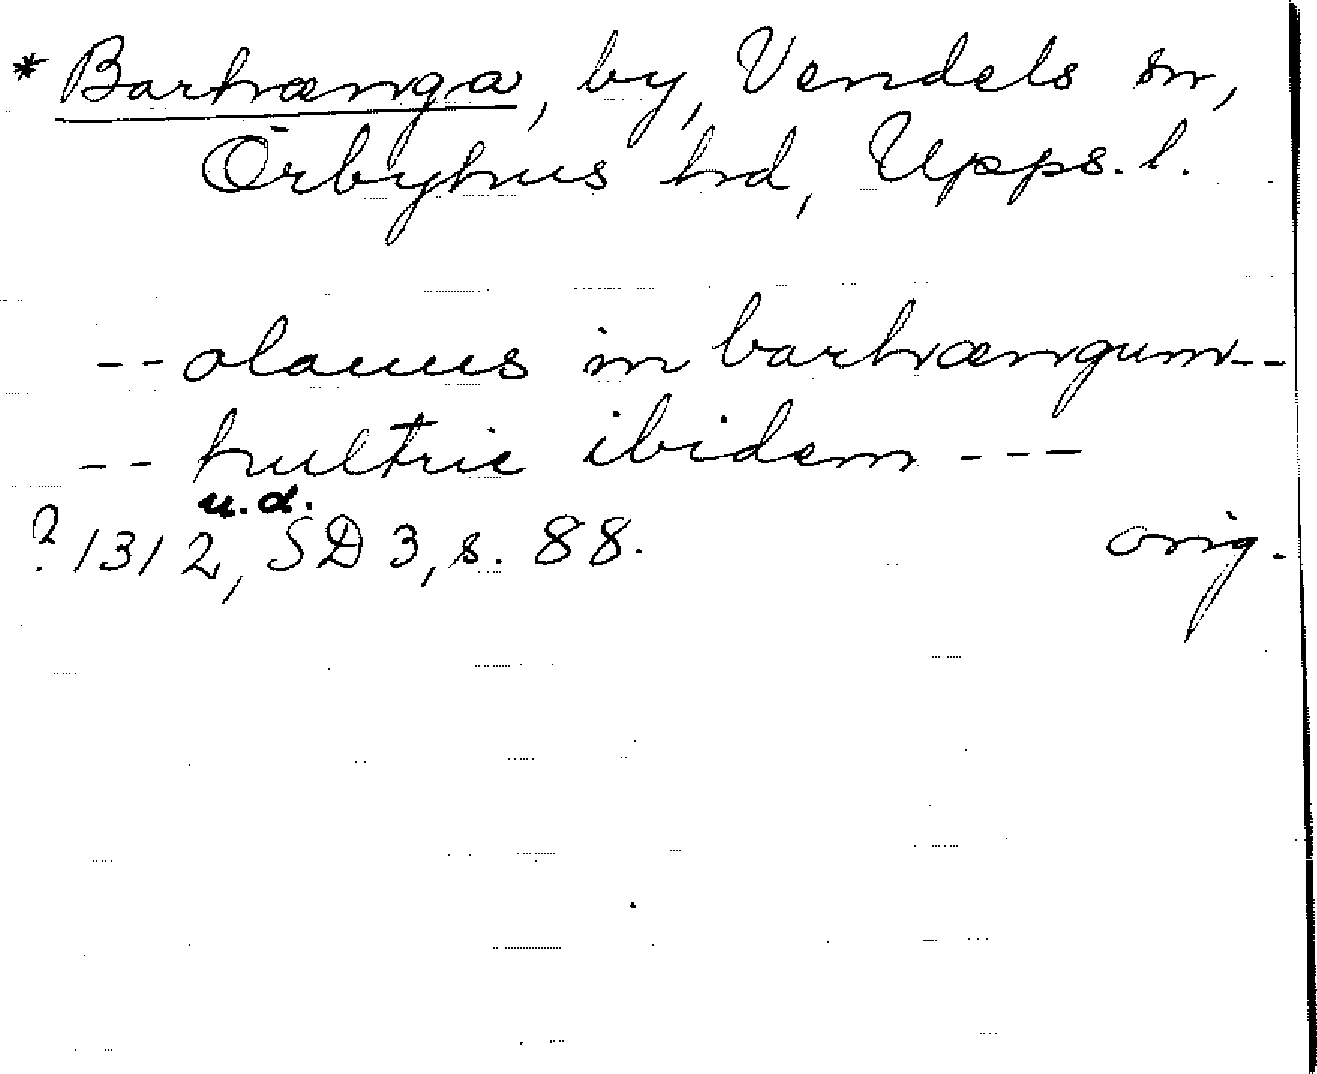 * Barhænga, by, Vendels sn,
Örbyhus hd, Upps. l.
-- olauus in barhængum--
-- hultric ibidem ---
u. d.
? 1312, SD 3, s. 88. orig.